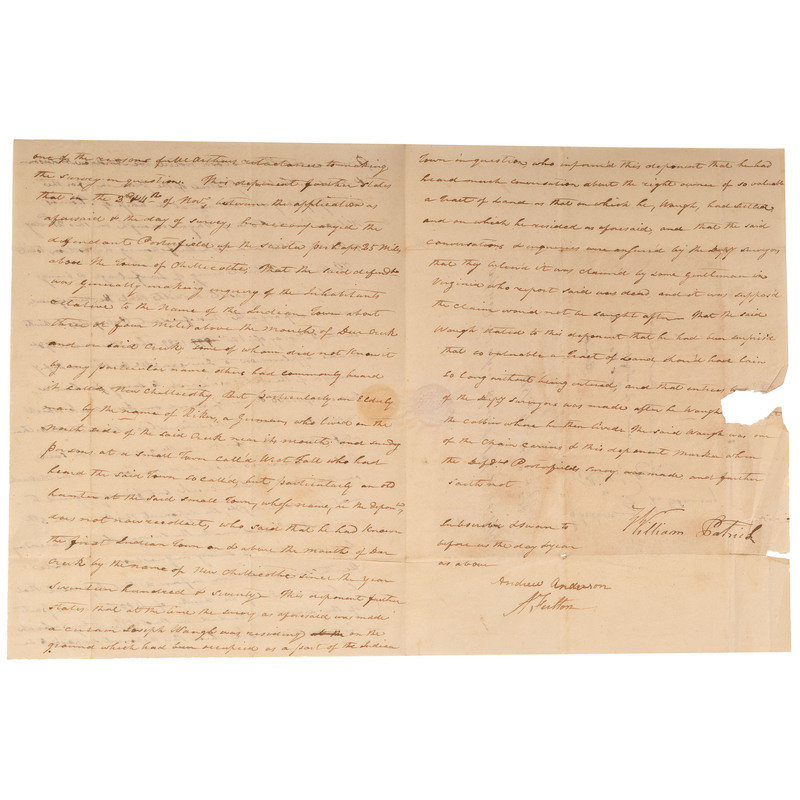 one of the reasons of McArthurs reluctance to making
the survey in question. This deponent further states
that on the 3d & 4th of Novr, between the application as
aforesaid & the day of survey, he accompanyed the
defendant Porterfield up the Scioto perhaps 25 Miles
above the Town of Chillicothe; That the said defendt
was generally making inquiry of the Inhabitants
relative to the name of the Indian Town about
three or four Miles above the Mouth of Deer Creek
and on said Creek some of whom did not know it
by any particular name others had commonly heard
it called New Chillicothy But particularly an Elderly
man by the name of a German, who lived on the
North side of the said Creek near its mouth and sundry
persons at a small Town called West Fall who had
heard the said Town so called, but particularly an old
hunter at the said small Town, whose name, the deponent
does not now recollect, who said that he had known
the first Indian Town on & above the Mouth of Deer
Creek by the name of New Chillicothe since the year
Seventeen hundred & Seventy This deponent further
states that at the time the survey as aforesaid was made
a certain Joseph Waugh was residing on the
ground which had been occupied as a part of the Indian
Town in question who informed this deponent that he had
heard much conversation about the right owner of so valuable
a tract of Land as that on which he, Waugh, had settled
and on which he resided as aforesaid, and that the said
conversations & inquiries were by the Depy Surveyors
that they believd it was claimed by some gentleman in
Virginia who report said was dead and it was supposd
the claim would not be sought after. That the said
Waugh stated to this deponent that he had been surprisd
that so valuable a tract of Land should have lain
so long without being entered, and that entries
of the Depy Surveyors was made after he Waugh
the Cabbin where he then lived. The said Waugh was one
of the Chain Carriers & this deponent Marker when
the Defdt Porterfields survey was made and further
saith not
Subscribed & Sworn to
before us the day & year
as above
William Patrick
Andrew Anderson
A. Fulton